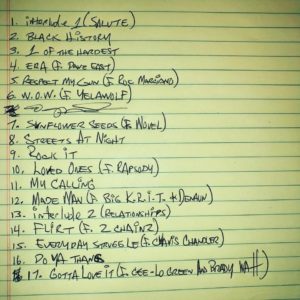 1. interlude 1 (SALUTE)
2. BLACK HISTORY
3. 1 OF THE HARDEST
4. ERA (F. DAVE EAST)
5. RESPECT MY GUN (F. ROC MARCIANO)
6. W.O.W. (F. YELAWOLF)
7. SUNFLOWER SEEDS (F. NOVEL)
8. STREETS AT NIGHT
9. ROCK IT
10. LOVED ONES (F. RAPSODY)
11. MY CALLING
12. MADE MAN (F. BIG K.R.I.T. + DENAUN)
13. interlude 2 (RELATIONSHIPS)
14. FLIRT (F. 2 CHAINZ)
15. EVERYDAY STRUGGLE (F. CHAVIS CHANDLER)
16. DO YA THANG
17. GOTTA LOVE IT (F. CEE-LO GREEN AND BRADY WATT)